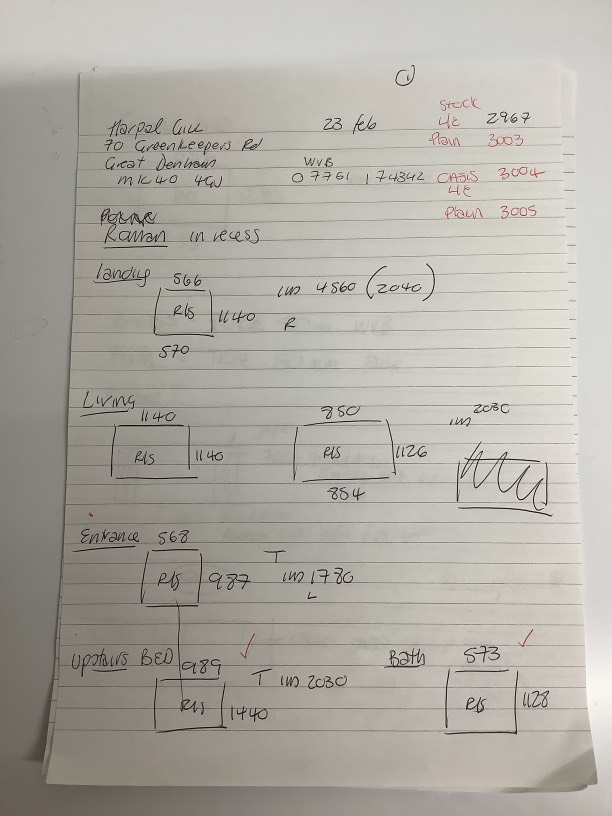 1
Stock
Harpal Gill 23 feb L/E 2967
70 Greenkeepers Rd Plain 3003
Great Denham WVB
MK40 4GJ 07761 174342 OASIS 3004
L/E
Plain 3005
Roman in recess
Landing 566 im 4560 (2040)
R/S 1140 R
570
Living
1140 850 im 2030
R/S 1140 R/S 1126
854
Entrance 568
R/S 987 T im 1780
L
Upstairs BED 989 T im 2030 Bath 573
R/S 1440 R/S 1128